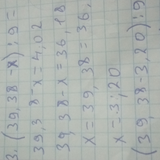 3. (39,38 - x) : 9 =
39,38 - x = 4,02
39,38 - x = 36,18
x = 39,38 = 36,
x = 3,20
(39,38 - 3,20) : 9